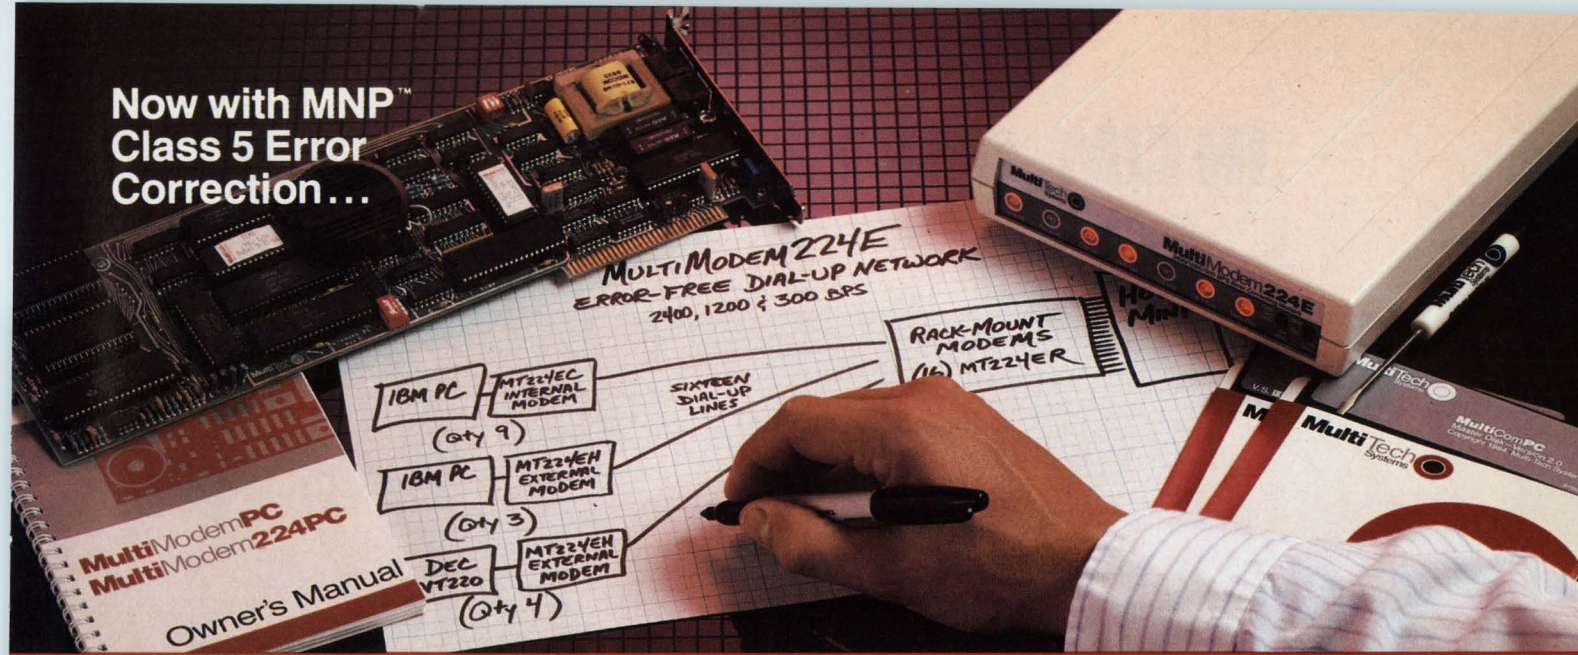 Now with MNP™
Class 5 Error
Correction...
MULTIMODEM 224E
ERROR-FREE DIAL-UP NETWORK
2400, 1200 & 300 BPS
IBM PC
MT224EC
INTERNAL
MODEM
(Qty 9)
IBM PC
MT224EH
EXTERNAL
MODEM
(Qty 3)
DEC
VT220
MT224EH
EXTERNAL
MODEM
(Qty 4)
SIXTEEN
DIAL-UP
LINES
RACK-MOUNT
MODEMS
(16) MT224ER
MultiTech
Systems
MultiModem224E
MultiModemPC
MultiModem224PC
Owner's Manual
MultiTech
Systems
MultiComPC
Master Disk—Version 2.0
Copyright 1984, Multi-Tech
MultiTech
Systems